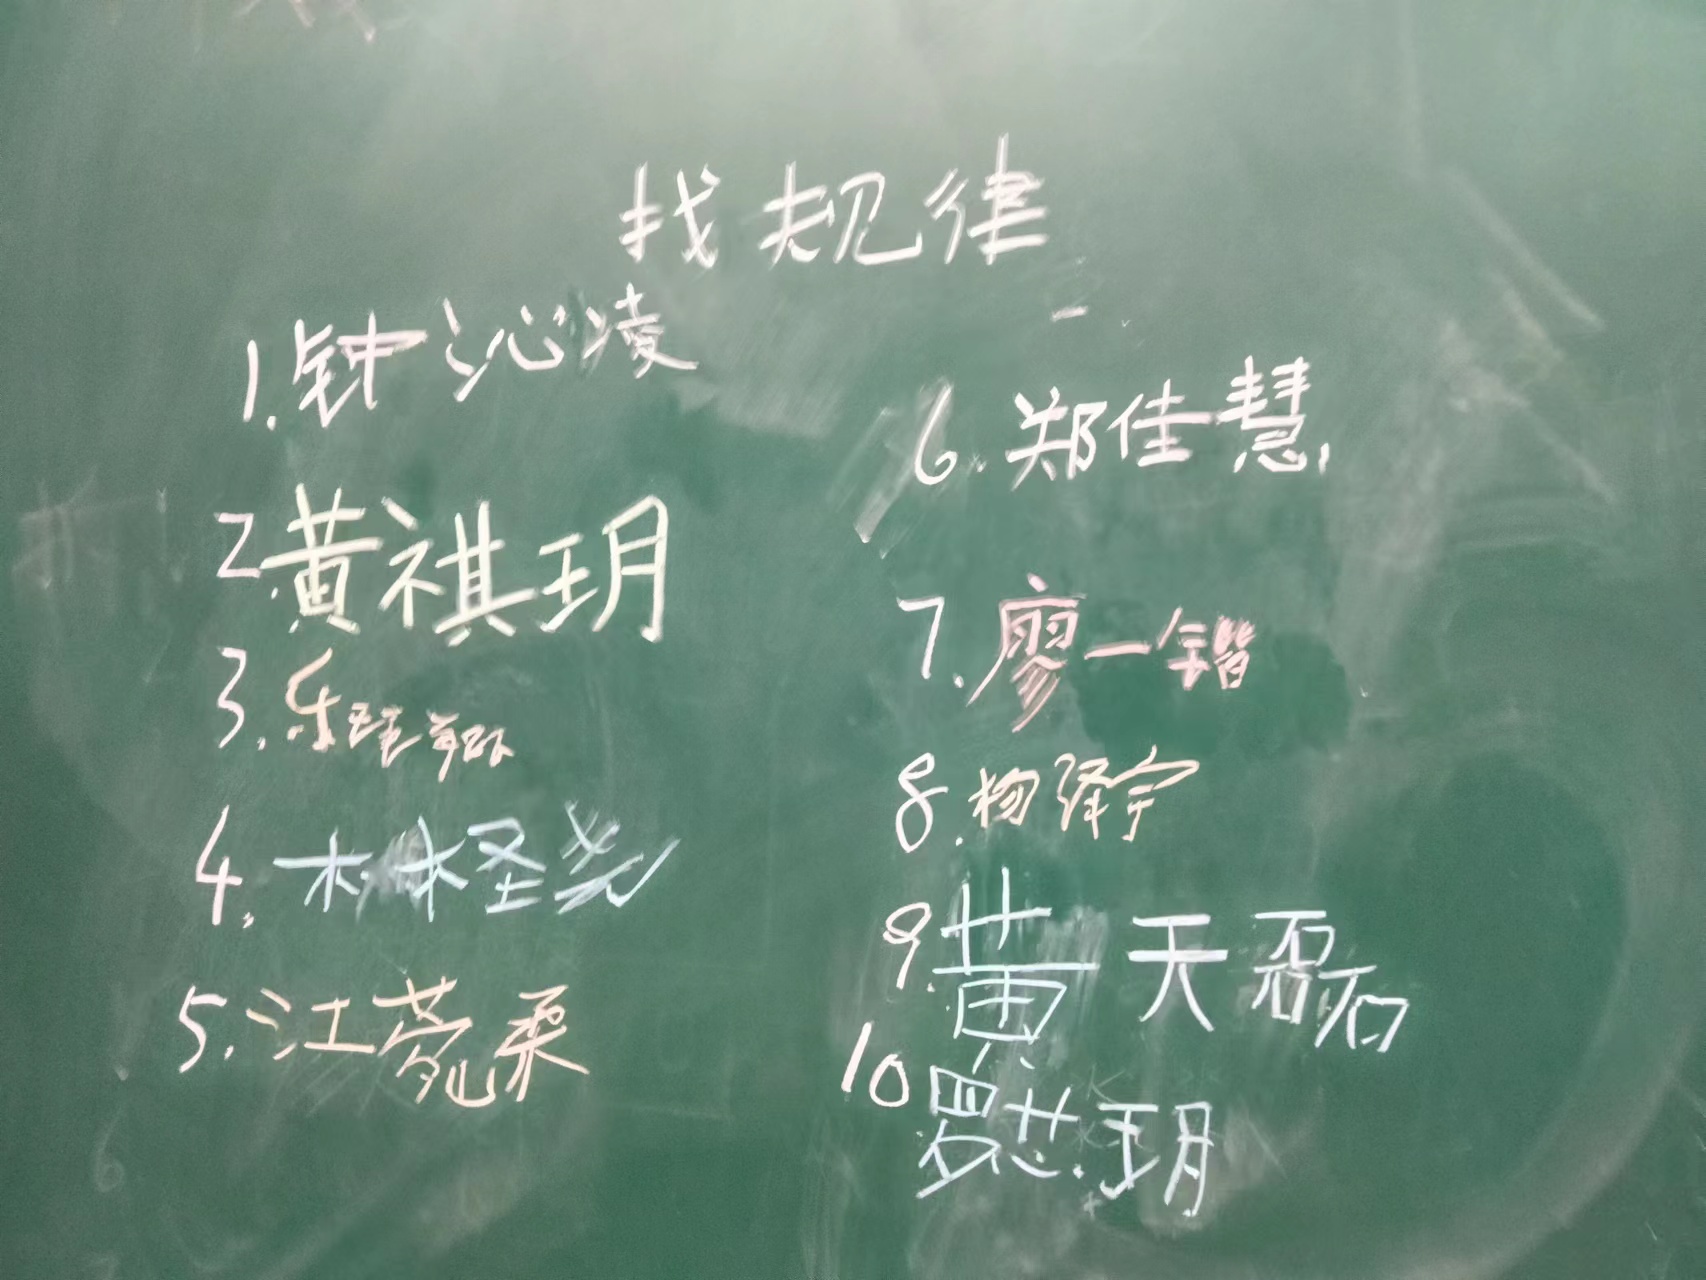 找规律
1.钟沁凌
2黄祺玥
3.乐
4.林烃尧
5.江菀柔
6.郑佳慧
7.廖一锴
8.杨泽宇
9.黄天磊
10罗芯玥